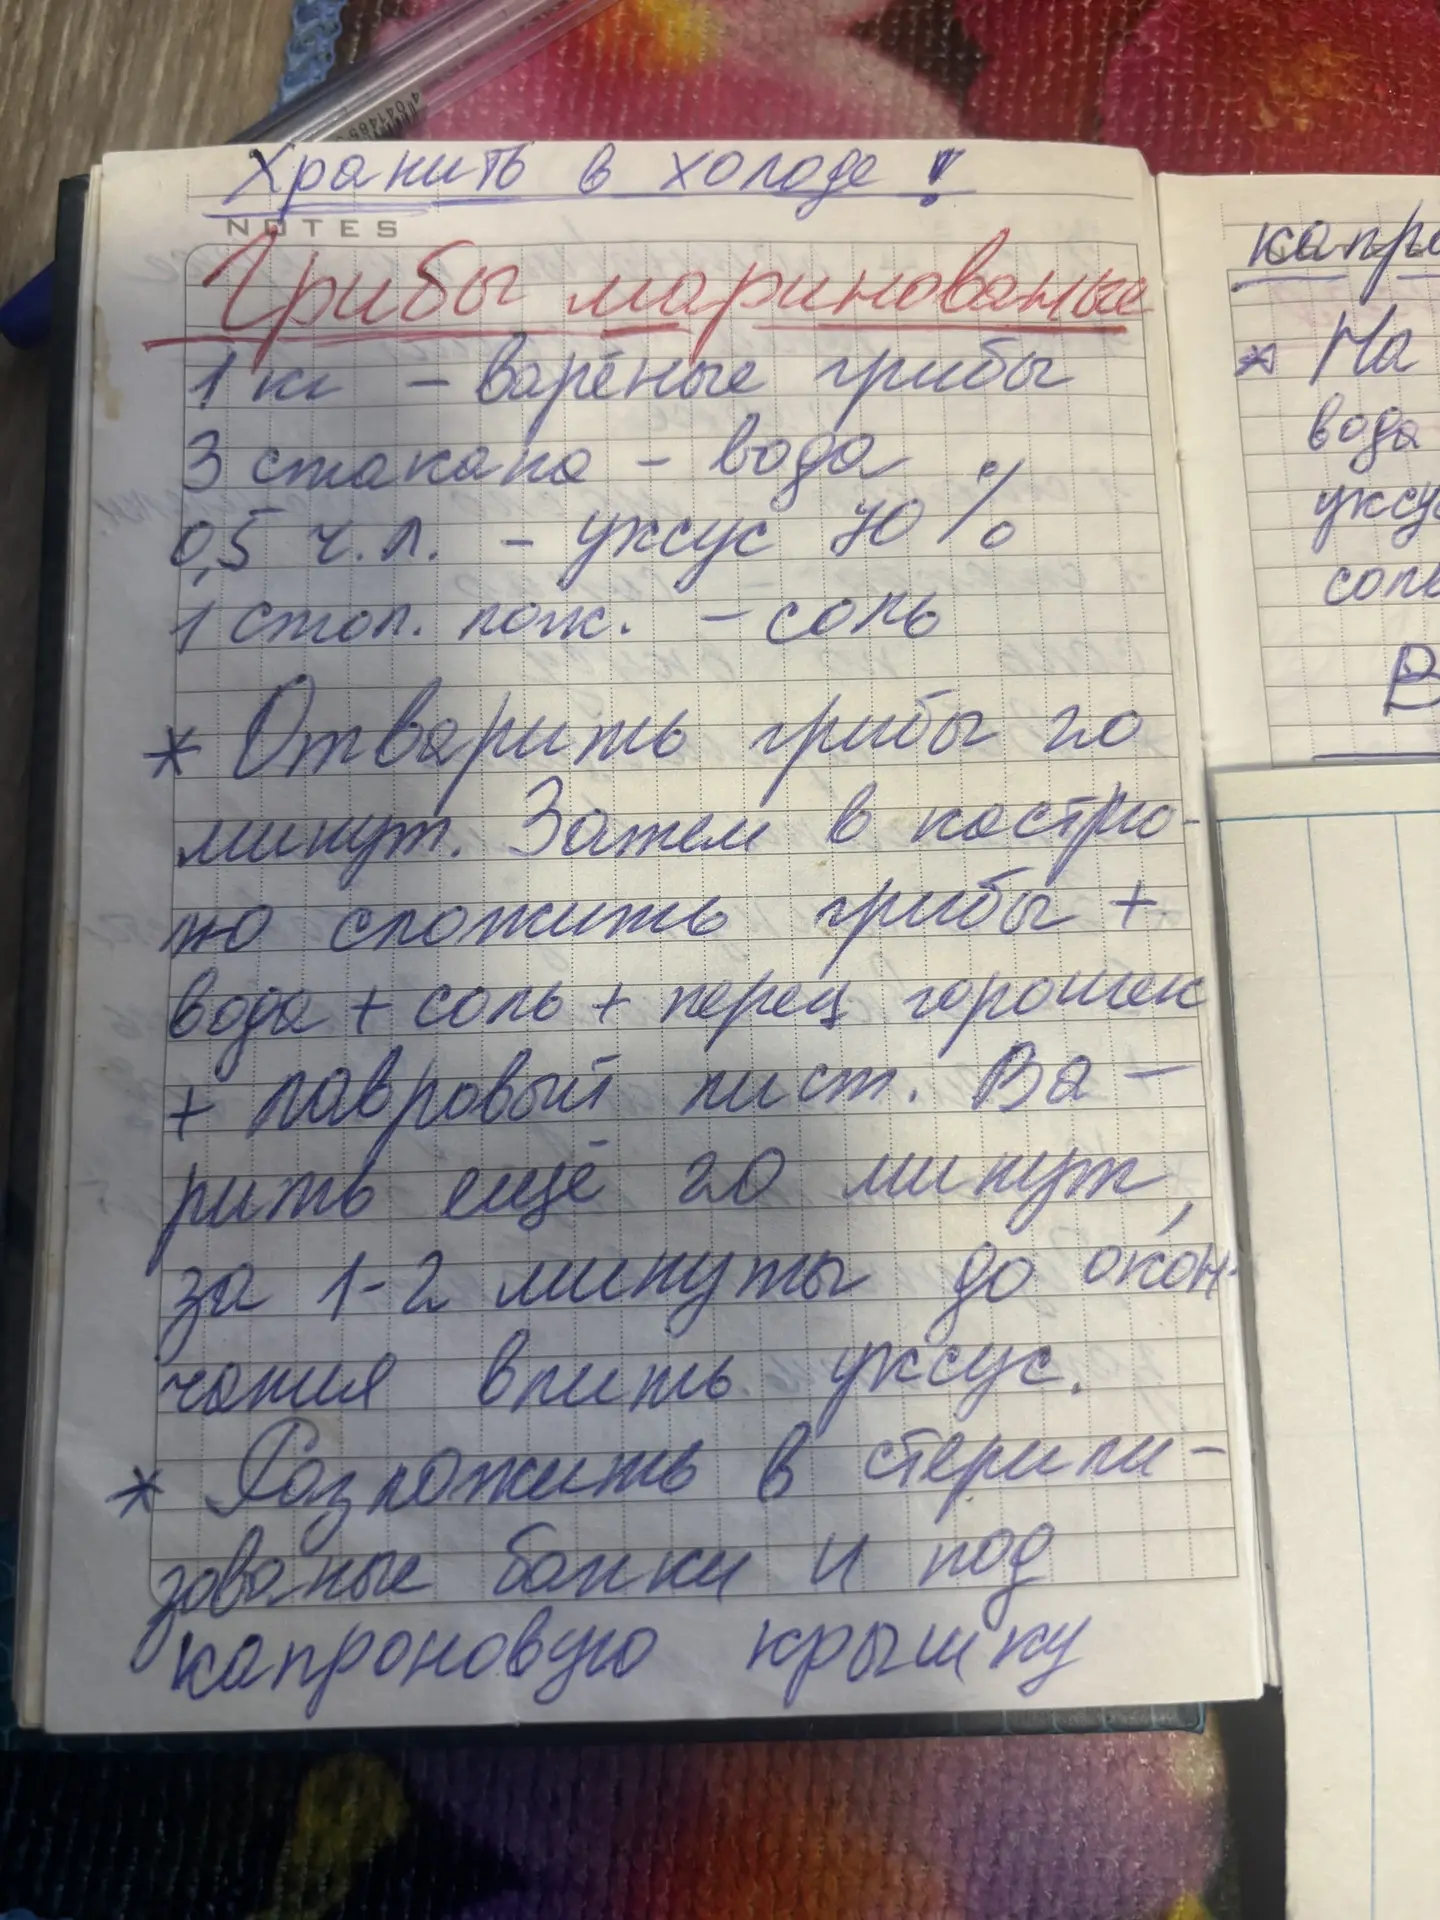 Хранить в холоде!
NOTES
Грибы маринованые
1 кг – варёные грибы
3 стакана – вода
0,5 ч.л. – уксус 70%
1 стол. лож. – соль
* Отварить грибы 20
минут. Затем в кастрю-
лю сложить грибы +
вода + соль + перец горошек
+ лавровый лист. Ва-
рить ещё 20 минут,
за 1-2 минуты до окон-
чания влить уксус.
* Разложить в стерили-
зованые банки и под
капроновую крышку
капро
* На
вода
уксу
соль
В